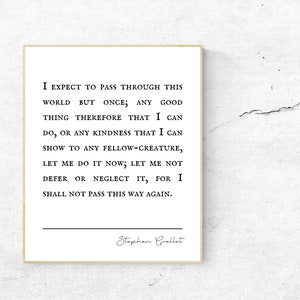 I EXPECT TO PASS THROUGH THIS
WORLD BUT ONCE; ANY GOOD
THING THEREFORE THAT I CAN
DO, OR ANY KINDNESS THAT I CAN
SHOW TO ANY FELLOW-CREATURE,
LET ME DO IT NOW; LET ME NOT
DEFER OR NEGLECT IT, FOR I
SHALL NOT PASS THIS WAY AGAIN.
Stephen Grellet